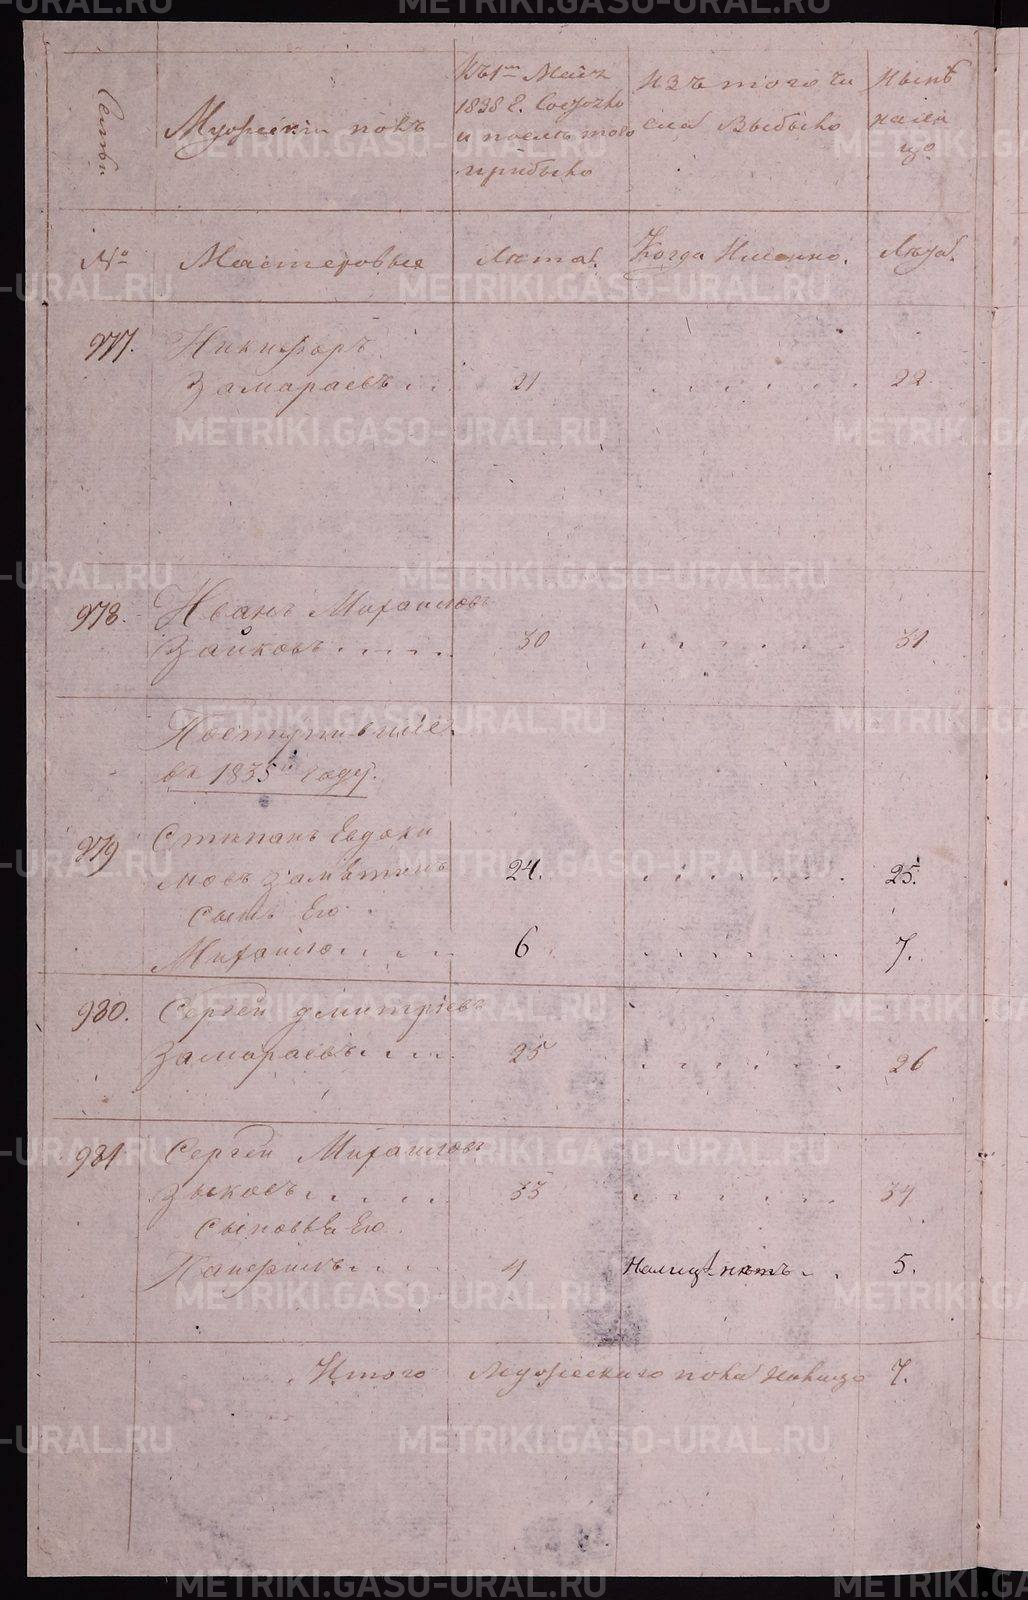 Семьи
Мужескiй полъ
Къ 1му Маiя
1838 г. Состояло
и послѣ того
прибыло
Изъ того чи
сла Выбыло
Нынѣ
налиц
цо
№
Мастеровые
Лѣта.
Когда Именно.
Лѣта.
977.
Никифоръ
Замараевъ....
21
22.
978.
Иванъ Михаиловъ
Зайковъ.....
30
31
Поступившiе
въ 1835м году.
979
Степанъ Евдоки
мовъ Замѣткинъ
24.
25.
Сынъ Его
Михаило....
6
7.
980.
Сергей Дмитрiевъ
Замараевъ....
25
26
981
Сергей Михаиловъ
Зыковъ.....
33
34
Сыновья Его
Панфилъ....
4
Налицѣ нѣтъ..
5.
Итого Мужескаго пола налицо 7.
METRIKI.GASO-URAL.RU